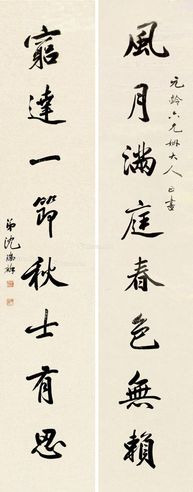 元齡六兄姻大人正書
風月滿庭春色無賴
窮達一節秋士有思
弟沈瑞麟